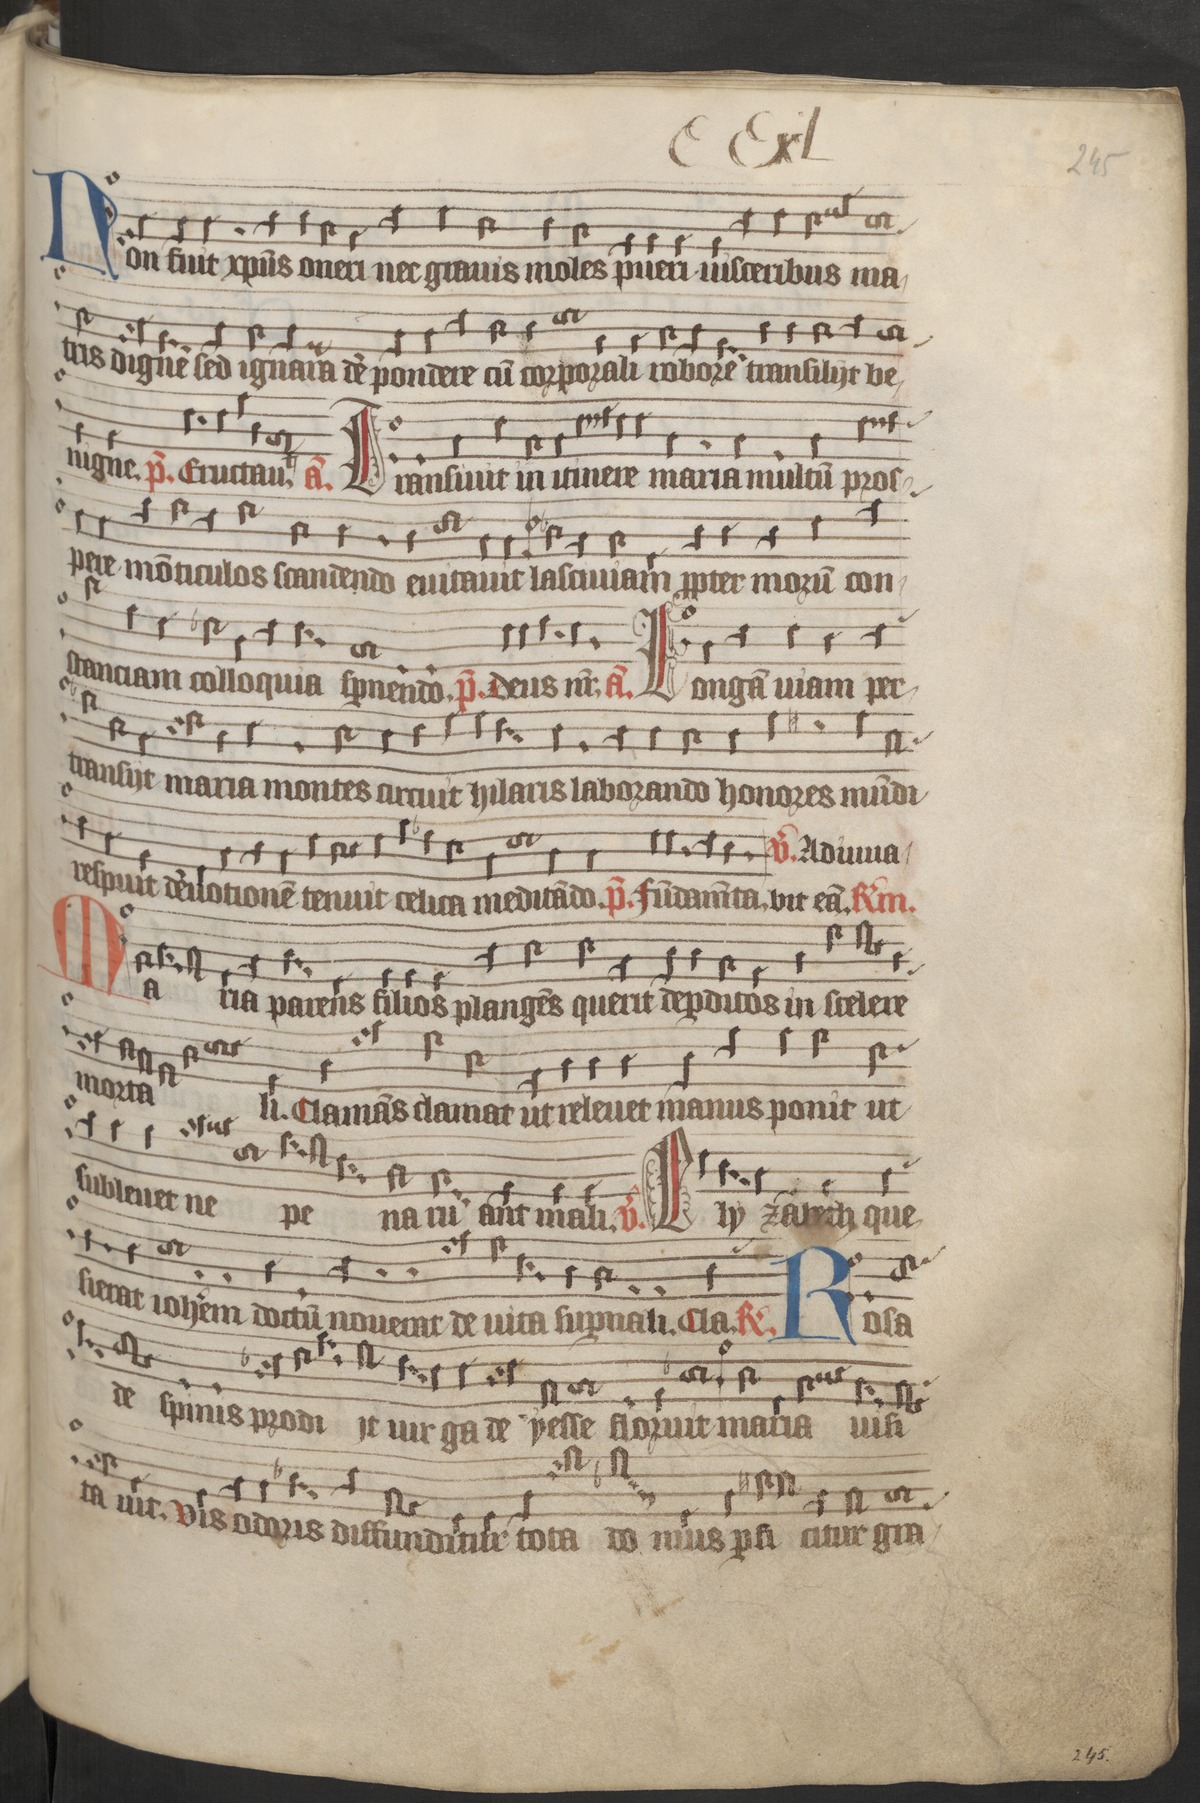 C CxL
245
Non fuit xp̄us oneri nec grauis moles pueri uisceribus ma
tris digne sed ignara de pondere cū corporali robore transilijt be
nigne. p̄. Eructau. a. Transiuit in itinere maria multū pros
pere mōticulos scandendo euitauit lasciuiam ꝓpter morū con
stanciam colloquia sp̄nendo. p̄. Deus nr̄. a. Longā uiam per
transijt maria montes circuit hilaris laborando honores mūdi
respuit deuotionē tenuit celica meditādo. p̄. Fūdam̄ta. v̄. Adiuua
bit eā. R̄m.
Ma ria parens filios plangēs querit deꝑditos in scelere
morta li. Clamās clamat ut releuet manus ponit ut
subleuet ne pe na rū ant mali. v̄. Ely zabeth que
sierat ioh̄em doctū nouerat de uita suꝑnali. Cla. R̄. Rosa
de spinis prodi jt uir ga de yesse floruit maria uisi
ta uit. Vis odoris diffunditur tota do mus ꝑfi citur gra
245.